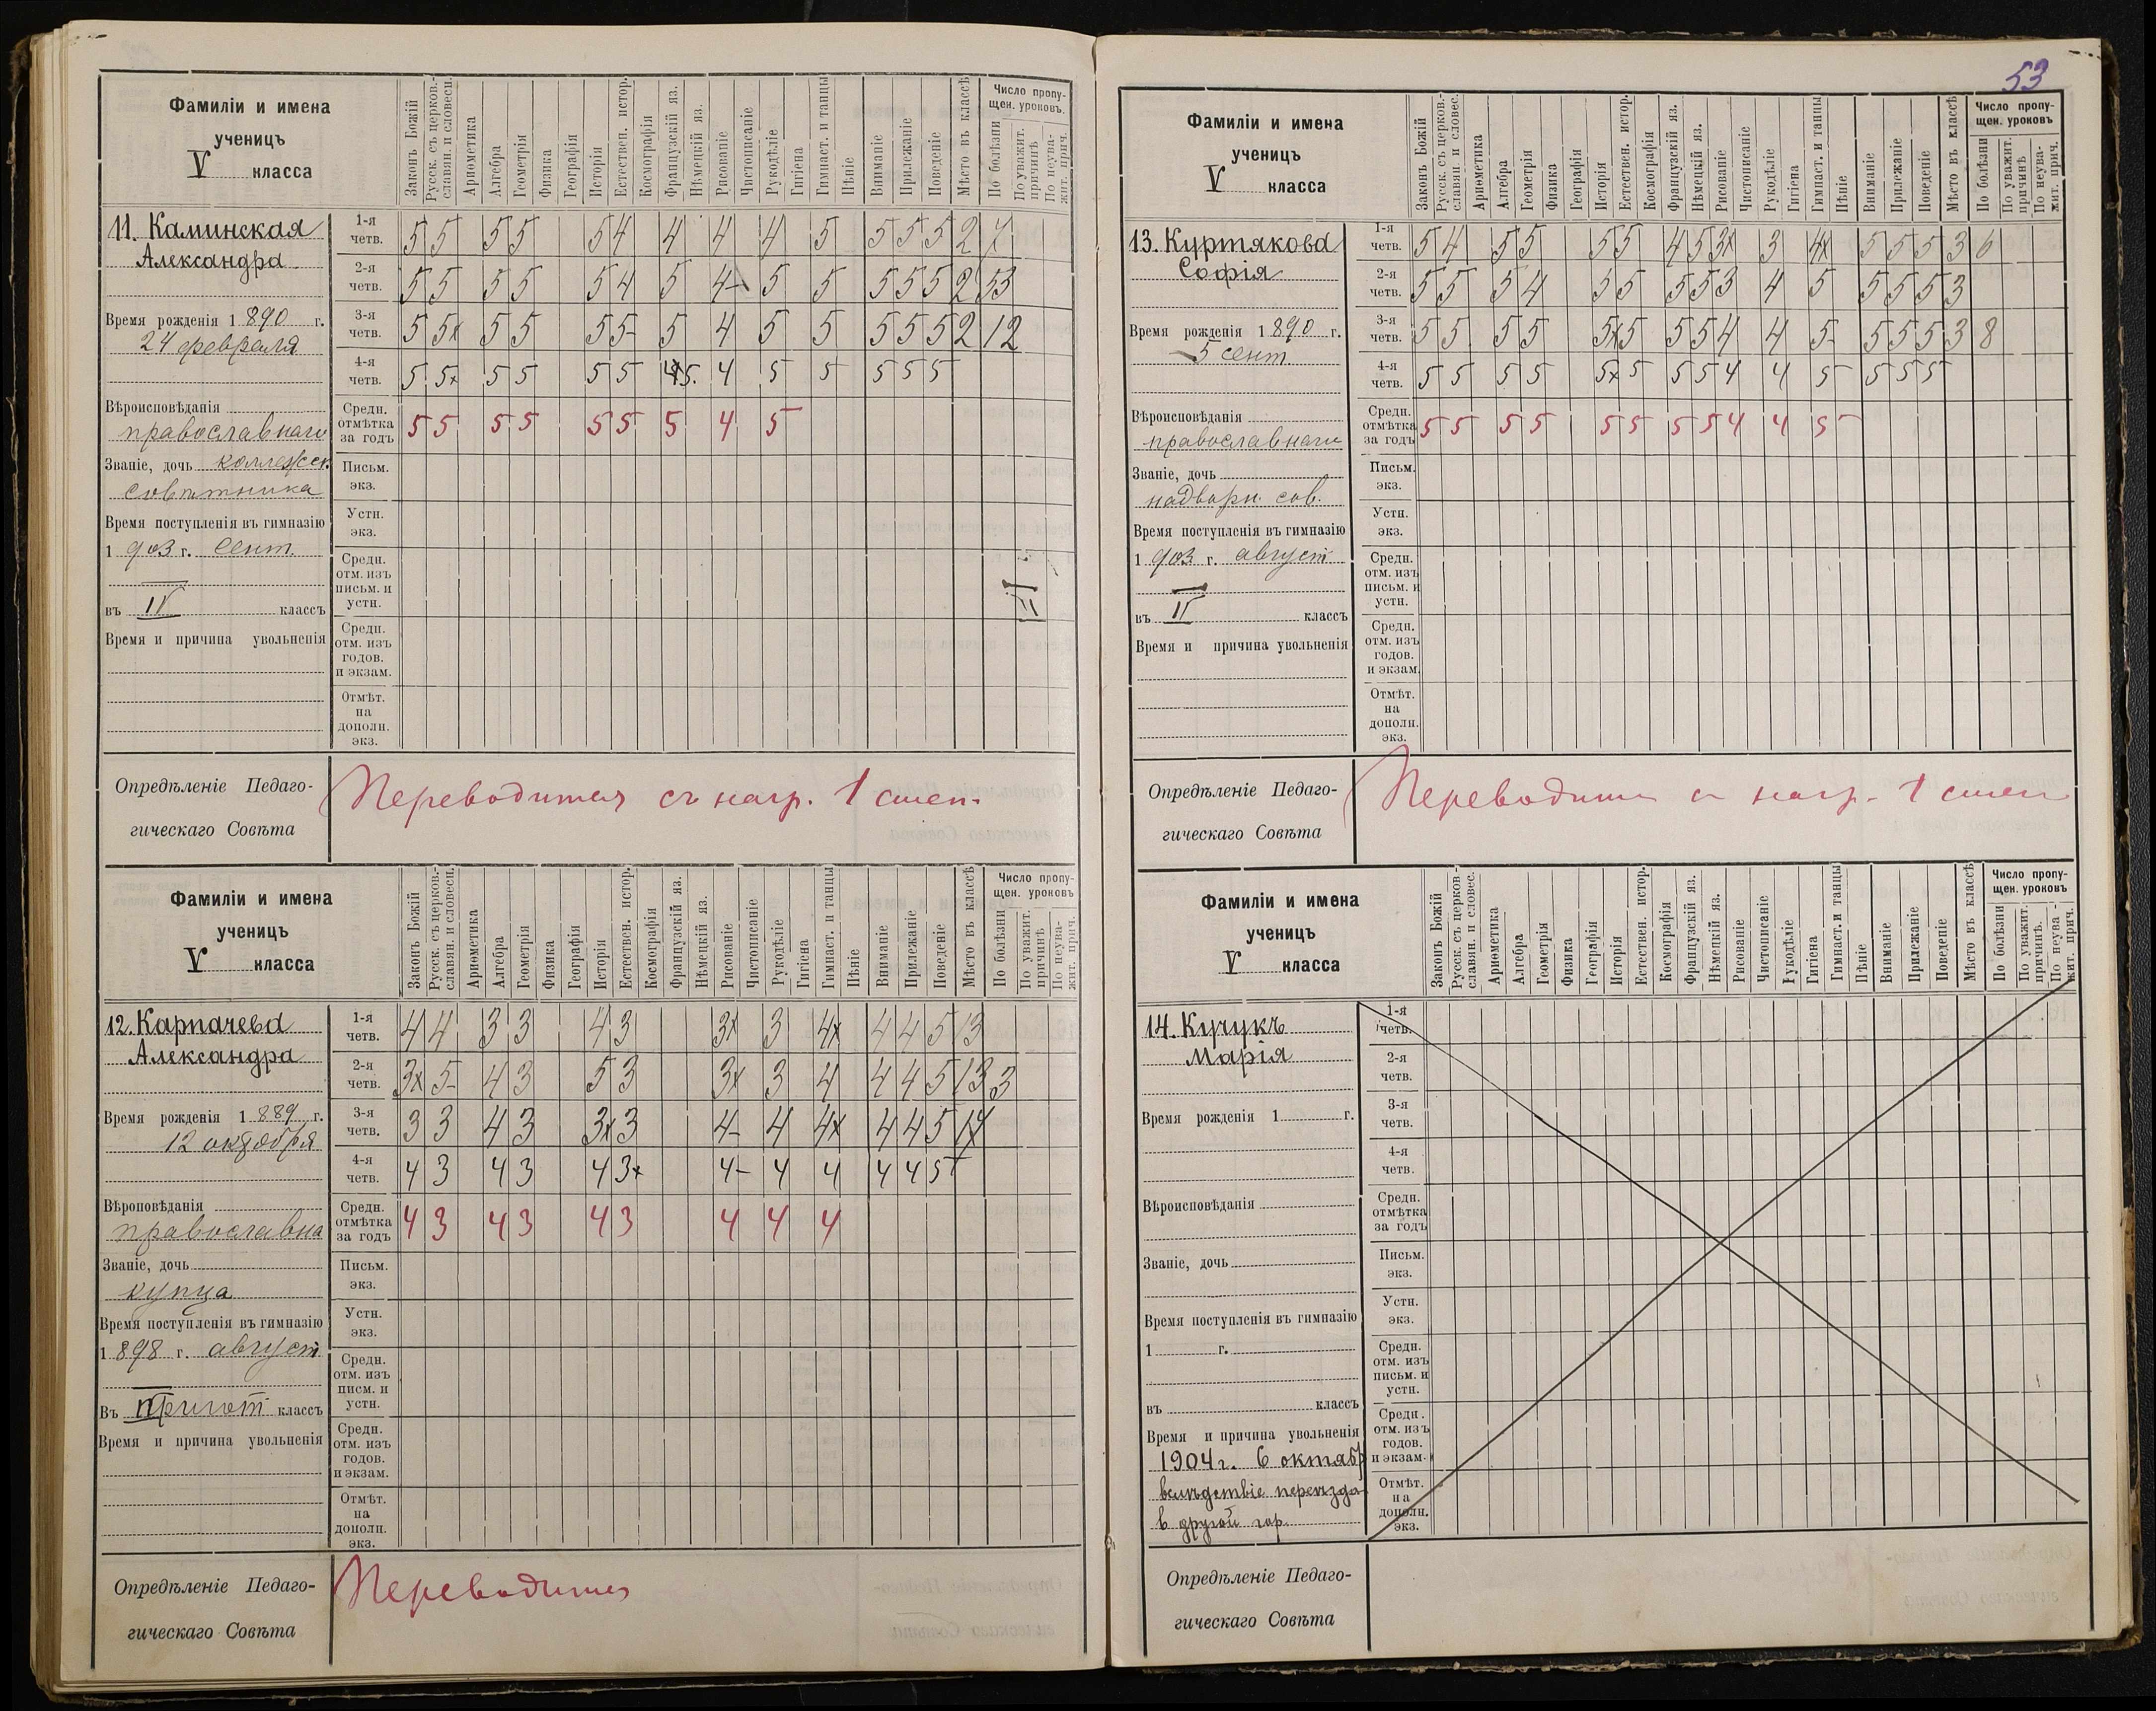 53
Фамиліи и имена
ученицъ
V класса
Законъ Божій
Русск. съ церков.-славян. и словесн.
Ариѳметика
Алгебра
Геометрія
Физика
Географія
Исторія
Естествен. истор.
Космографія
Французскій яз.
Нѣмецкій яз.
Рисованіе
Чистописаніе
Рукодѣліе
Гигіена
Гимнаст. и танцы
Пѣніе
Вниманіе
Прилежаніе
Поведеніе
Мѣсто въ классѣ
Число пропу-
щен. уроковъ.
По болѣзни
По уважит. причинѣ
По неува-жит. прич.
11. Каминская
Александра
Время рожденія 1890 г.
24 февраля
Вѣроисповѣданія
православнаго
Званіе, дочь коллежск.
совѣтника
Время поступленія въ гимназію
1903 г. сент.
въ IV классъ
Время и причина увольненія
1-я четв. 5 5 5 5 5 4 4 4 4 5 5 5 5 2 7
2-я четв. 5 5 5 5 5 4 5 4- 5 5 5 5 5 2 53
3-я четв. 5 5x 5 5 5 5- 5 4 5 5 5 5 5 2 12
4-я четв. 5 5x 5 5 5 5 5. 4 5 5 5 5 5
Средн. отмѣтка за годъ 5 5 5 5 5 5 5 4 5
Письм. экз.
Устн. экз.
Средн. отм. изъ письм. и устн.
Средн. отм. изъ годов. и экзам.
Отмѣт. на дополн. экз.
Опредѣленіе Педаго-
гическаго Совѣта
Переводится съ нагр. 1 степ.
Фамиліи и имена
ученицъ
V класса
Законъ Божій
Русск. съ церков.-славян. и словесн.
Ариѳметика
Алгебра
Геометрія
Физика
Географія
Исторія
Естествен. истор.
Космографія
Французскій яз.
Нѣмецкій яз.
Рисованіе
Чистописаніе
Рукодѣліе
Гигіена
Гимнаст. и танцы
Пѣніе
Вниманіе
Прилежаніе
Поведеніе
Мѣсто въ классѣ
Число пропу-
щен. уроковъ
По болѣзни
По уважит. причинѣ
По неува-жит. прич.
12. Карпачева
Александра
Время рожденія 1889 г.
12 октября
Вѣроповѣданія
православна
Званіе, дочь
купца
Время поступленія въ гимназію
1898 г. август
Въ Пригот классъ
Время и причина увольненія
1-я четв. 4 4 3 3 4 3 3x 3 4x 4 4 5 13
2-я четв. 3x 5- 4 3 5 3 3x 3 4 4 4 5 13 3
3-я четв. 3 3 4 3 3x 3 4- 4 4x 4 4 5 14
4-я четв. 4 3 4 3 4 3x 4- 4 4 4 4 5
Средн. отмѣтка за годъ 4 3 4 3 4 3 4 4 4
Письм. экз.
Устн. экз.
Средн. отм. изъ писм. и устн.
Средн. отм. изъ годов. и экзам.
Отмѣт. на дополн. экз.
Опредѣленіе Педаго-
гическаго Совѣта
Переводится
Фамиліи и имена
ученицъ
V класса
Законъ Божій
Русск. съ церков.-славян. и словес.
Ариѳметика
Алгебра
Геометрія
Физика
Географія
Исторія
Естествен. истор.
Космографія
Французскій яз.
Нѣмецкій яз.
Рисованіе
Чистописаніе
Рукодѣліе
Гигіена
Гимнаст. и танцы
Пѣніе
Вниманіе
Прилежаніе
Поведеніе
Мѣсто въ классѣ
Число пропу-
щен. уроковъ
По болѣзни
По уважит. причинѣ
По неува-жит. прич.
13. Куртякова
Софія
Время рожденія 1890 г.
5 сент.
Вѣроисповѣданія
православнаго
Званіе, дочь
надворн. сов.
Время поступленія въ гимназію
1903 г. август
въ классъ
Время и причина увольненія
1-я четв. 5 4 5 5 5 5 4 5 3x 3 4x 5 5 5 3 6
2-я четв. 5 5 5 4 5 5 5 5 3 4 5 5 5 5 3
3-я четв. 5 5 5 5 5x 5 5 5 4 4 5- 5 5 5 3 8
4-я четв. 5 5 5 5 5x 5 5 5 4 4 5 5 5 5
Средн. отмѣтка за годъ 5 5 5 5 5 5 5 5 4 4 5
Письм. экз.
Устн. экз.
Средн. отм. изъ письм. и устн.
Средн. отм. изъ годов. и экзам.
Отмѣт. на дополн. экз.
Опредѣленіе Педаго-
гическаго Совѣта
Переводится съ нагр. 1 степ
Фамиліи и имена
ученицъ
V класса
Законъ Божій
Русск. съ церков-славян. и словес.
Ариѳметика
Алгебра
Геометрія
Физика
Географія
Исторія
Естествен. истор.
Космографія
Французскій яз.
Нѣмецкій яз.
Рисованіе
Чистописаніе
Рукодѣліе
Гигіена
Гимнаст. и танцы
Пѣніе
Вниманіе
Прилежаніе
Поведеніе
Мѣсто въ классѣ
Число пропу-
щен. уроковъ
По болѣзни
По уважит. причинѣ.
По неува-жит. прич.
14. Кучукъ
Марія
Время рожденія 1 г.
Вѣроисповѣданія
Званіе, дочь
Время поступленія въ гимназію
1 г.
въ классъ
Время и причина увольненія
1904 г. 6 октябр
вслѣдствіе переѣзда
в другой гор.
1-я четв.
2-я четв.
3-я четв.
4-я четв.
Средн. отмѣтка за годъ
Письм. экз.
Устн. экз.
Средн. отм. изъ письм. и устн.
Средн. отм. изъ годов. и экзам.
Отмѣт. на дополн. экз.
Опредѣленіе Педаго-
гическаго Совѣта